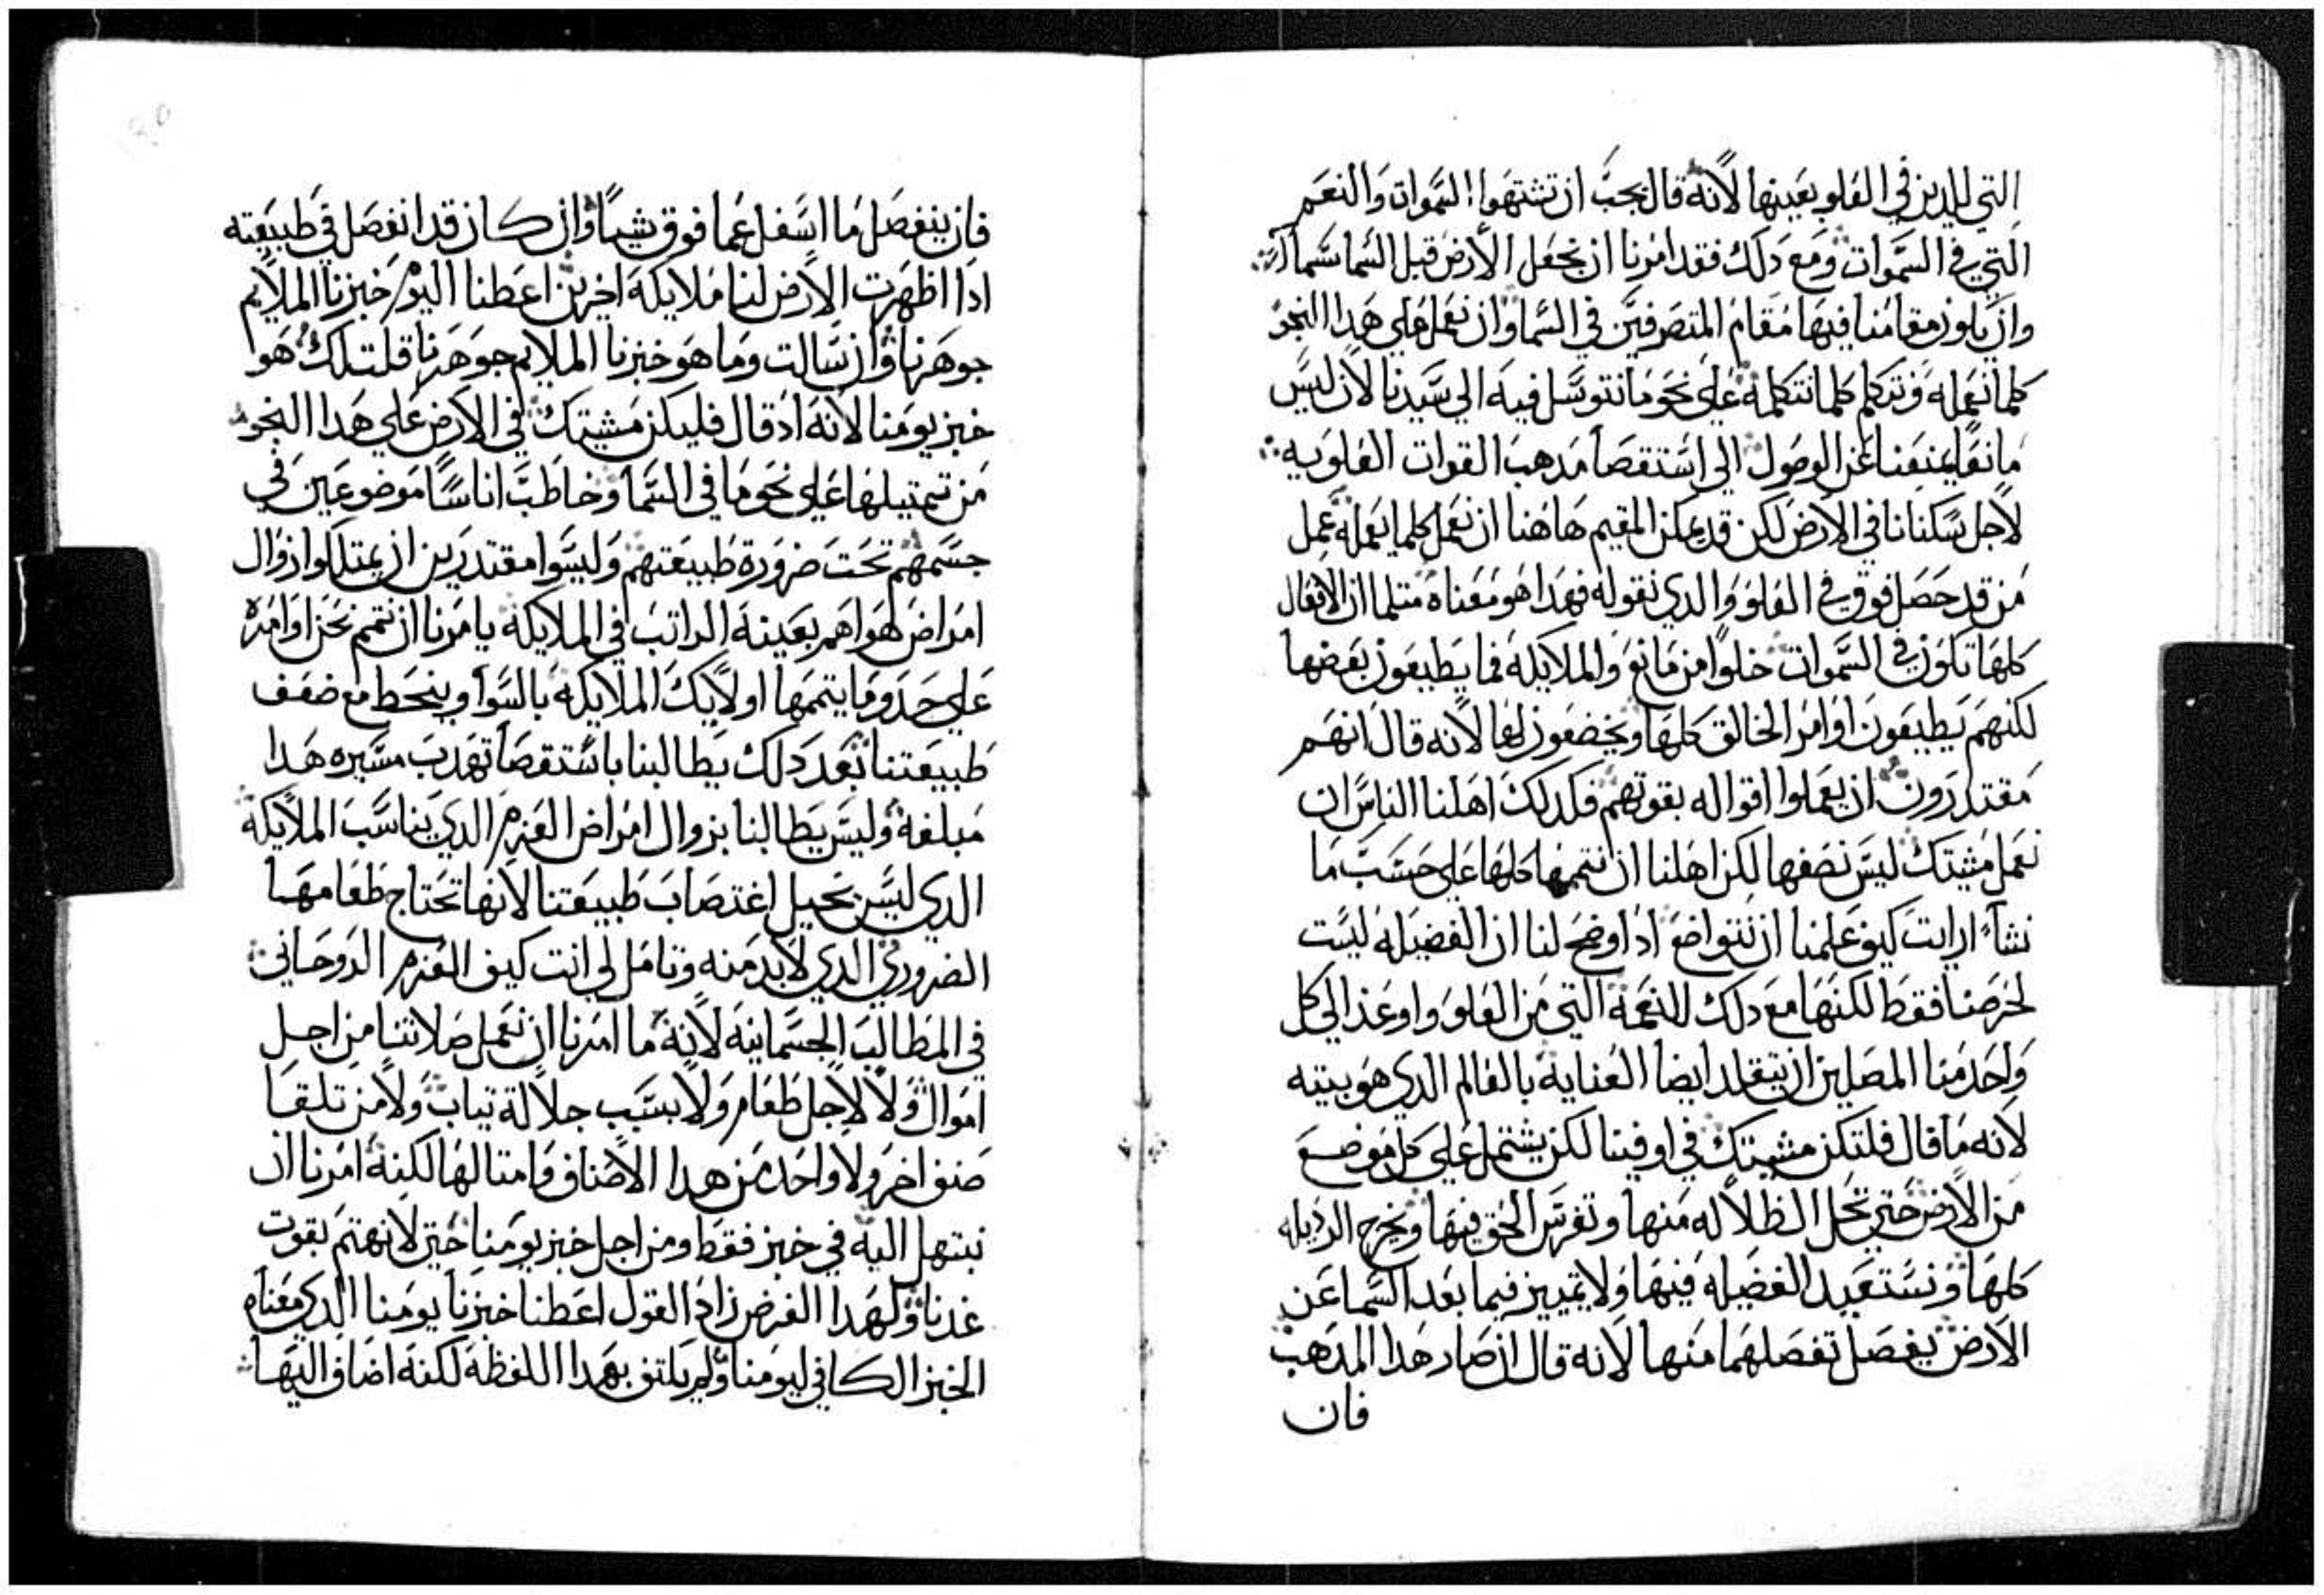 التي للدين في العلو بعينها لانه قال يجب ان تشتهوا السموات والنعم
التي في السموات ومع دلك فقد امرنا ان نجعل الارض قبل السما سما
وان يكون مقامنا فيها مقام المتصرفين في السما وان نعمل على هدا النحو
كلما نعمله ونتكلم كلما نتكلمه على نحو ما نتوسل فيه الى سيدنا لان ليس
مانعا يمنعنا عن الوصول الى استقصا مدهب القوات العلويه
لاجل سكنانا في الارض لكن قد يمكن المقيم هاهنا ان نعمل كلما يعمله عمل
من قد حصل فوق في العلو والدي نقوله فهدا هو معناه متلما ان الافعال
كلها تكون في السموات خلوا من مانع والملايكه فما يطيعون بعضها
لكنهم يطيعون اوامر الخالق كلها ويخضعون لها لانه قال انهم
مقتدرون ان يعملوا اقواله بقوتهم فكدلك اهلنا الناس ان
نعمل مشيتك ليس نصفها لكن اهلنا ان نتممها كلها على حسب ما
نشا ارايت كيف علمنا ان نتواضع اد اوضح لنا ان الفضيله ليست
لحرصنا فقط لكنها مع دلك للنعمه التي من العلو واوعد الى كل
واحد منا المصلين ان يتقلد ايضا العنايه بالعالم الدي هو بيته
لانه ما قال فلتكن مشيتك في او فينا لكن يشتمل على كل موضع
من الارض حتى تحل الظلاله منها وتغرس الحق فيها ونخرج الرديله
كلها ونستعيد الفضيله فيها ولا يتميز فيما بعد السما عن
الارض بفصل تفصلهما منها لانه قال ان صار هدا المدهب
فان
فان ينفصل ما اسفل عما فوق شيا وان كان قد انفصل في طبيعته
ادا اظهرت الارض لنا ملايكه اخرين اعطنا اليوم خبزنا الملايم
جوهرنا وان سالت وما هو خبزنا الملايم جوهرنا قلت لك هو
خبز يومنا لانه اد قال فليكن مشيتك في الارض على هدا النحو
من تمتيلها على نحو ما في السما وخاطب اناسا موضوعين في
جسمهم تحت ضرورة طبيعتهم وليسوا مقتدرين ان يمتلكوا زوال
امراض هواهم بعينه الراتب في الملايكه يامرنا ان نتمم نحن اوامره
على حدو ما يتممها اولايك الملايكه بالسوا وينحط مع ضعف
طبيعتنا بعد دلك يطالبنا باستقصا تهدب مسيره هدا
مبلغه وليس يطالبنا بزوال امراض العزم الدي يناسب الملايكه
الدي ليس نحيل اغتصاب طبيعتنا لانها تحتاج طعامها
الضروري الدي لابد منه وتامل لي انت كيف العزم الروحاني
في المطالب الجسمانيه لانه ما امرنا ان نعمل صلاتنا من اجل
اموال ولا لاجل طعام ولا بسبب جلالة تياب ولا من تلقا
صنف اخر ولا واحد من هدا الاصناف وامتالها لكنه امرنا ان
نبتهل اليه في خبز فقط ومن اجل خبز يومنا حتى لانهتم بقوت
غدنا ولهدا الغرض زاد القول اعطنا خبزنا يومنا الدي معناه
الخبز الكافي ليومنا ولم يكتف بهدا اللفظه لكنه اضاف اليها